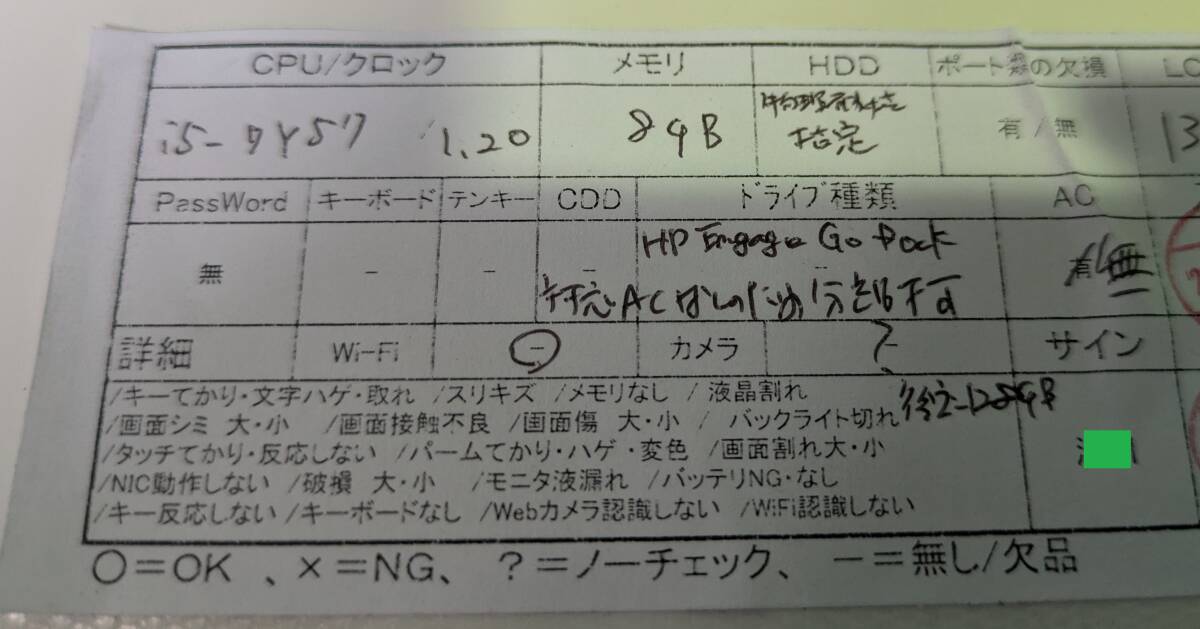 CPU/クロック メモリ HDD ポート類の欠損 LC
i5-7Y57 /1.20 8GB 指定 有/無 13
PassWord キーボード テンキー CDD ドライブ種類 AC
無 - - - HP Engage Go 有/無
対応ACなしのため 不可
詳細 Wi-Fi - カメラ ? - サイン
/キーてかり・文字ハゲ・取れ /スリキズ /メモリなし / 液晶割れ
128GB
/画面シミ 大・小 /画面接触不良 /画面傷 大・小 / バックライト切れ
/タッチてかり・反応しない /パームてかり・ハゲ・変色 /画面割れ大・小
/NIC動作しない /破損 大・小 /モニタ液漏れ /バッテリNG・なし
/キー反応しない /キーボードなし /Webカメラ認識しない /WiFi認識しない
〇=OK 、×=NG、 ?=ノーチェック、 -=無し/欠品